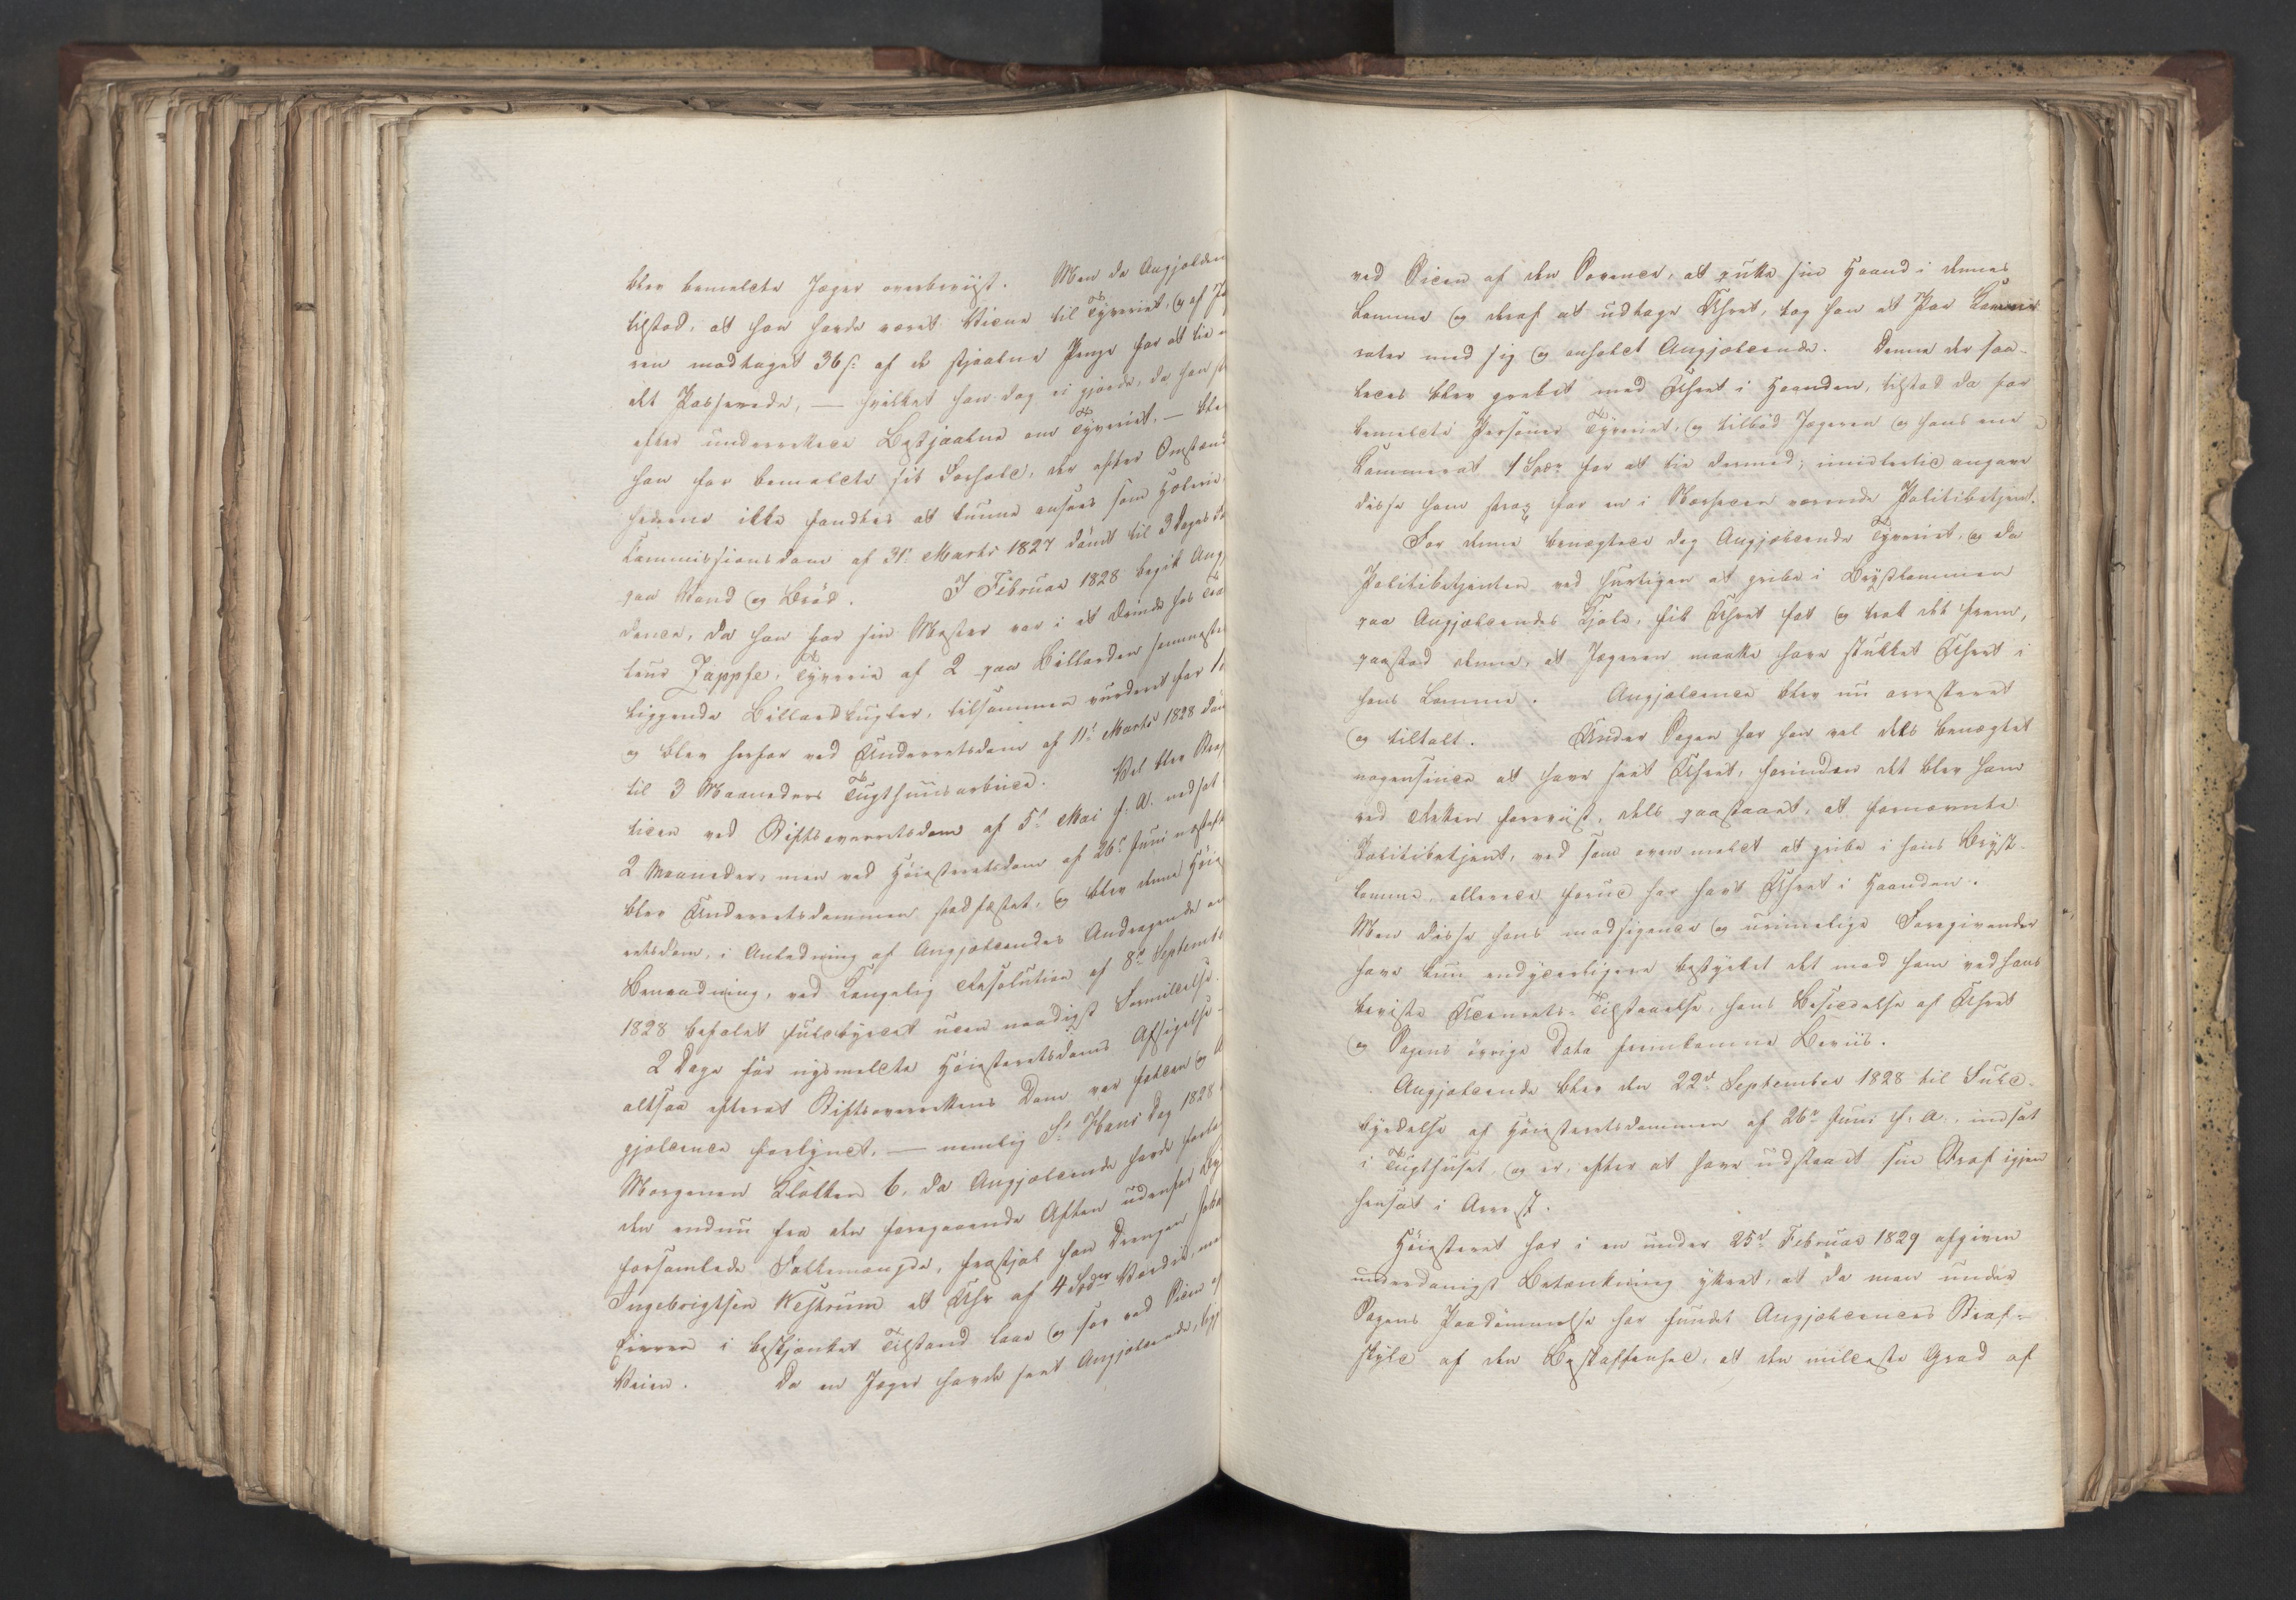 blev bemeldte Jæger overbeviist. Men da Angjælden
tilstod, at han havde været Vidne til Tyveriet, og af Jæ
ren modtaget 36 s: af de stjaalne Penge for at tie m
det Passerede, — hvilket han dog ei gjorde, da han st
efter underrettede Bestjaalne om Tyveriet, — ble
han for bemeldte sit Forhold, der efter Omstænd
hederne ikke fandtes at kunne ansees som Hæleri,
Commissionsdom af 31t Marts 1827 dömt til 3 Dages F
paa Vand og Bröd. I Februar 1828 begik Ang
dende, da han for sin Mester var i et Ærinde hos
teur Zappfe, Tyverie af 2 paa Billarden sammesteds
liggende Billardkugler, tilsammen vurderet for 1
og blev herfor ved Underretsdom af 11t Marts 1828 döm
til 3 Maaneders Tugthuusarbeide. Vel blev Straf
tiden ved Stiftsoverretsdom af 5t Mai s. A. nedsat
2 Maaneder, men ved Höiesteretsdom af 26de Juni næsteft
blev Underretsdommen stadfæstet, og blev denne Höie
retsdom, i Anledning af Angjældendes Andragende o
Benaadning, ved Kongelig Resolution af 8de Septemb
1828 befalet fuldbyrdet uden naadigst Formildelse.
2 Dage för nysmeldte Höiesteretsdoms Afsigelse
altsaa efterat Stiftsoverrettens Dom var falden og A
gjældende forkyndt, — nemlig St Hans Dag 1828
Morgenen Klokken 6, da Angjældende havde forla
den endnu fra den foregaaende Aften udenfor By
forsamlede Folkemængde, frastjal han Drengen Joha
Ingebrigtsen Westrum et Uhr af 4 Spdr Værdie, me
Eieren i beskjænket Tilstand laae og sov ved Siden a
Veien. Da en Jæger havde seet Angjældende, ligg
ved Siden af den Sovende, at putte sin Haand i dennes
Lomme og deraf at udtage Uhret, tog han et Par Kamme-
rater med sig og anholdt Angjældende. Denne der saa-
ledes blev grebet med Uhret i Haanden, tilstod da for
bemeldte Personer Tyveriet, og tilböd Jægeren og hans ene
Kammerat 1 Spdr for at tie dermed; imidlertid angave
disse ham strax for en i Nærheden værende Politibetjent.
For denne benægtede dog Angjældende Tyveriet, og da
Politibetjenten ved hurtigen at gribe i Brystlommen
paa Angjældendes Kjole, fik Uhret fat og trak det frem,
paastod denne, at Jægeren maatte have stukket Uhret i
hans Lomme. Angjældende blev nu arresteret
og tiltalt. Under Sagen har han vel dels benægtet
nogensinde at have seet Uhret, forinden det blev ham
ved Retten foreviist, dels paastaaet, at fornævnte
Politibetjent, ved som ovenmeldt at gribe i hans Bryst-
lomme, allerede forud har havt Uhret i Haanden.
Men disse hans modsigende og urimelige Foregivender
have kun endydermere bestyrket det mod ham ved hans
beviste Udenrets-Tilstaaelse, hans Besiddelse af Uhret
og Sagens övrige Data fremkomne Beviis.
Angjældende blev den 22d September 1828 til Fuld-
byrdelse af Höiesteretsdommen af 26de Juni s. A., indsat
i Tugthuset, og er, efter at have udstaaet sin Straf igjen
hensat i Arrest.
Höiesteret har i en under 25d Februar 1829 afgiven
underdanigst Betænkning yttret, at da man under
Sagens Paadömmelse har fundet Angjældendes Straf-
skyld af den Beskaffenhed, at den mildeste Grad af